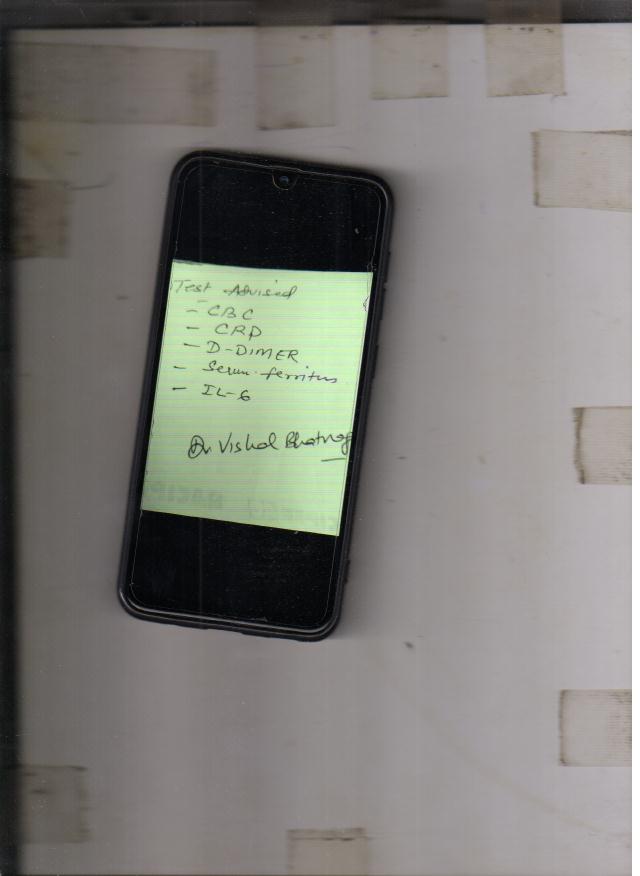 Test Advised
- CBC
- CRP
- D-DIMER
- Serum ferritin
- IL-6
Dr Vishal Bhatnag